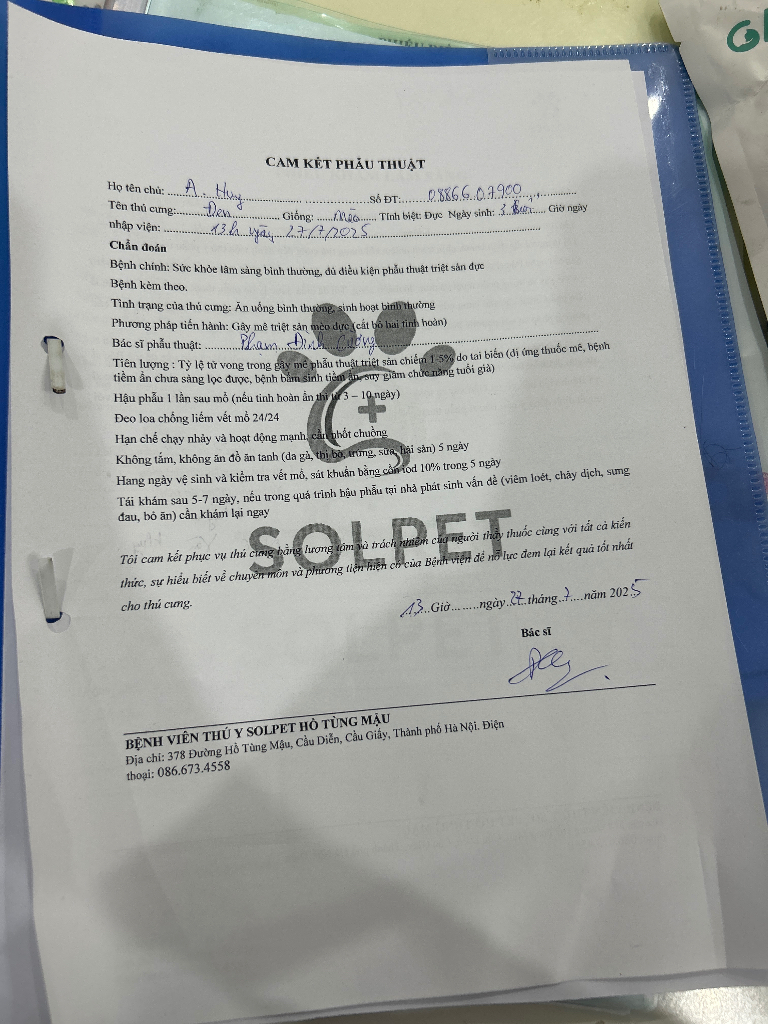 CAM KẾT PHẪU THUẬT
Họ tên chủ: A. Huy Số ĐT: 08866.07900
Tên thú cưng: Đen Giống: Mèo Tính biệt: Đực Ngày sinh: 3 tuổi Giờ ngày
nhập viện: 13h ngày 27/7/2025
Chẩn đoán
Bệnh chính: Sức khỏe lâm sàng bình thường, đủ điều kiện phẫu thuật triệt sản đực
Bệnh kèm theo.
Tình trạng của thú cưng: Ăn uống bình thường, sinh hoạt bình thường
Phương pháp tiến hành: Gây mê triệt sản mèo đực (cắt bỏ hai tinh hoàn)
Bác sĩ phẫu thuật: Phạm Đình Cường
Tiên lượng : Tỷ lệ tử vong trong gây mê phẫu thuật triệt sản chiếm 1-5% do tai biến (dị ứng thuốc mê, bệnh
tiềm ẩn chưa sàng lọc được, bệnh bẩm sinh tiềm ẩn, suy giảm chức năng tuổi già)
Hậu phẫu 1 lần sau mổ (nếu tinh hoàn ẩn thì từ 3 – 10 ngày)
Đeo loa chống liếm vết mổ 24/24
Hạn chế chạy nhảy và hoạt động mạnh, cần nhốt chuồng
Không tắm, không ăn đồ ăn tanh (da gà, thị bò, trứng, sữa, hải sản) 5 ngày
Hang ngày vệ sinh và kiểm tra vết mổ, sát khuẩn bằng cồn iod 10% trong 5 ngày
Tái khám sau 5-7 ngày, nếu trong quá trình hậu phẫu tại nhà phát sinh vấn đề (viêm loét, chảy dịch, sưng
đau, bỏ ăn) cần khám lại ngay
SOLPET
Tôi cam kết phục vụ thú cưng bằng lương tâm và trách nhiệm của người thầy thuốc cùng với tất cả kiến
thức, sự hiểu biết về chuyên môn và phương tiện hiện có của Bệnh viện để nỗ lực đem lại kết quả tốt nhất
cho thú cưng.
13 Giờ........ngày 27 tháng 7 năm 2025
Bác sĩ
BỆNH VIỆN THÚ Y SOLPET HỒ TÙNG MẬU
Địa chỉ: 378 Đường Hồ Tùng Mậu, Cầu Diễn, Cầu Giấy, Thành phố Hà Nội. Điện
thoại: 086.673.4558